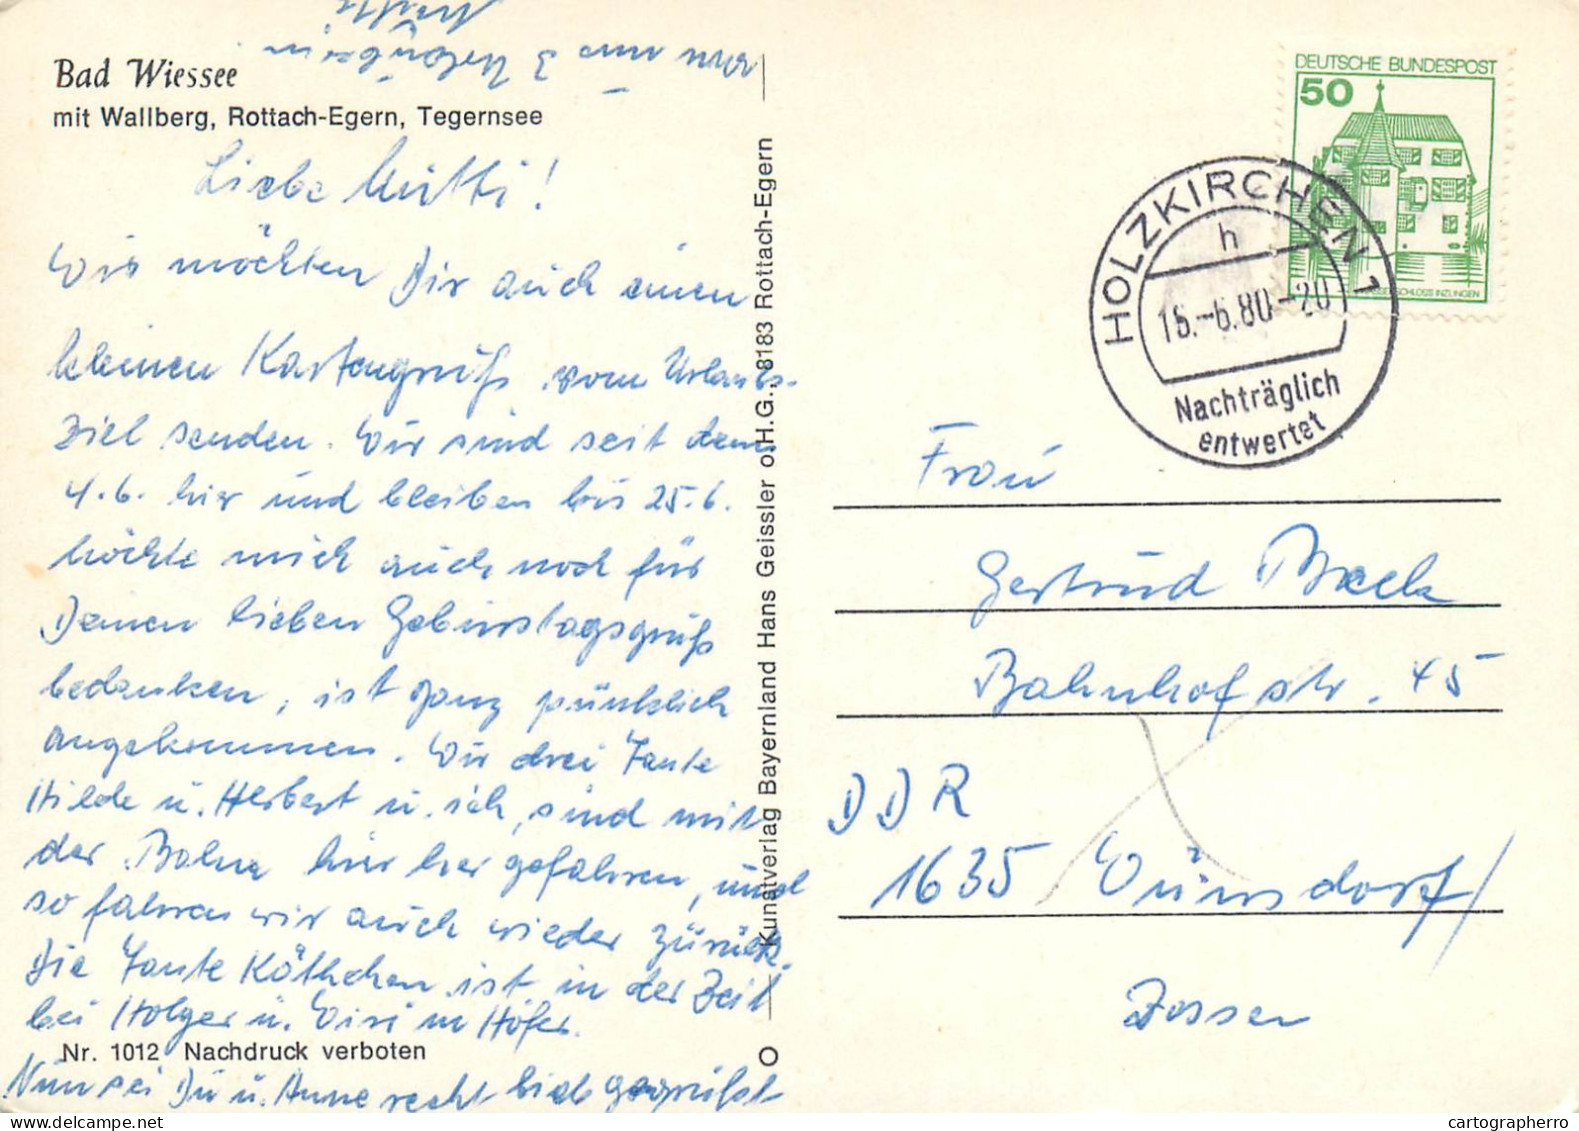 Bad Wiessee
mit Wallberg, Rottach-Egern, Tegernsee
Liebe Mutti!
Wir möchten Dir auch einen
kleinen Kartengruß vom Urlaubs-
Ziel senden. Wir sind seit dem
4.6. hier und bleiben bis 25.6.
Möchte mich auch noch für
Deinen lieben Geburtstagsgruß
bedanken, ist ganz pünktlich
angekommen. Wir drei Tante
Hilde u. Herbert u. ich, sind mit
der Bahn hier her gefahren, und
so fahren wir auch wieder zurück.
Die Tante Käthchen ist in der Zeit
bei Holger u. in Höfer.
Nun sei Du u. Anne recht lieb gegrüßt
von uns 3
Nr. 1012 Nachdruck verboten
Kunstverlag Bayernland Hans Geissler o.H.G., 8183 Rottach-Egern
DEUTSCHE BUNDESPOST
50
WASSERSCHLOSS INZLINGEN
HOLZKIRCHEN 1
h
16.-6.80-20
Nachträglich
entwertet
Frau
Gertrud
Bahnhofstr. 45
DDR
1635 Wünsdorf/
Zossen
cartographerro